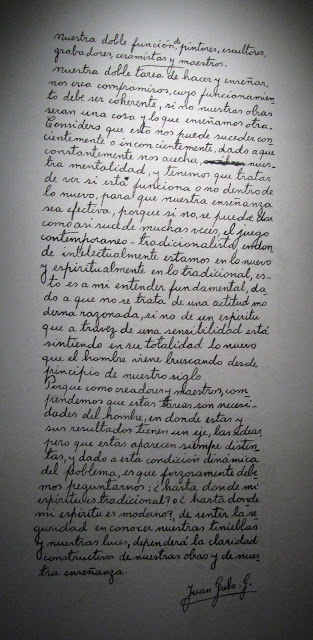 Nuestra doble función, de pintores, escultores,
grabadores, ceramistas y maestros.
Nuestra doble tarea de hacer y enseñar,
nos crea compromisos, cuyo funcionamien
to debe ser coherente, si no nuestras obras
seran una cosa y lo que enseñamos otra.
Considero que esto nos puede suceder con
cientemente o inconcientemente, dado a que
constantemente nos acecha, nues-
tra mentalidad, y tenemos que tratar
de ver si esta funciona o no dentro de
lo nuevo, para que nuestra enseñanza
sea efectiva, porque si no, se puede dar
como asi sucede muchas veces, el juego
contemporaneo - tradicionalista, en don
de intelectualmente estamos en lo nuevo
y espiritualmente en lo tradicional, es-
to es a mi entender fundamental, da
do a que no se trata de una actitud mo
derna razonada, si no de un espiritu
que a travez de una sensibilidad está
sintiendo en su totalidad lo nuevo
que el hombre viene buscando desde
principio de nuestro siglo.
Porque como creadores y maestros, com
prendemos que estas tareas son necesi-
dades del hombre, en donde estas y
sus resultados tienen un eje, las ideas,
pero que estas aparecen siempre distin
tas, y dado a esta condición dinámica
del poblema, es que forzosamente debe
mos peguntarnos: ¿hasta donde mi
espiritu es tradicional? o ¿ hasta donde
mi espiritu es moderno?, de sentir la se
guridad en conocer nuestras tinieblas
y nuestras luces, dependerá la claridad
constructiva de nuestras obras y de nues
tra enseñanza.
Juan Grela. G.